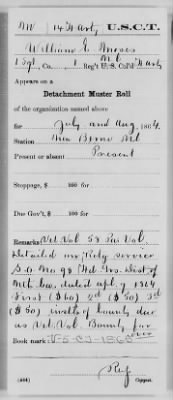 M | 14 H Arty | U.S.C.T.
William E. Moses
1 Sgt, Co. , 1 Reg't U.S. Col'd H Arty
Appears on a
Detachment Muster Roll
of the organization named above
for July and Aug, 1864.
Station New Berne NC
Present or absent Present
Stoppage, $ 100 for
Due Gov't, $ 100 for
Remarks: Vet. Vol 58 Pa Vol.
Detailed on Rctg service
S.O No 98 Hd. Qrs. Dist of
N.C. dated apl. 7 1864
First ($60) 2d ($50) 3d
($50) instls of bounty due
as Vet. Vol. Bounty
Book mark:
(484) Copyist.